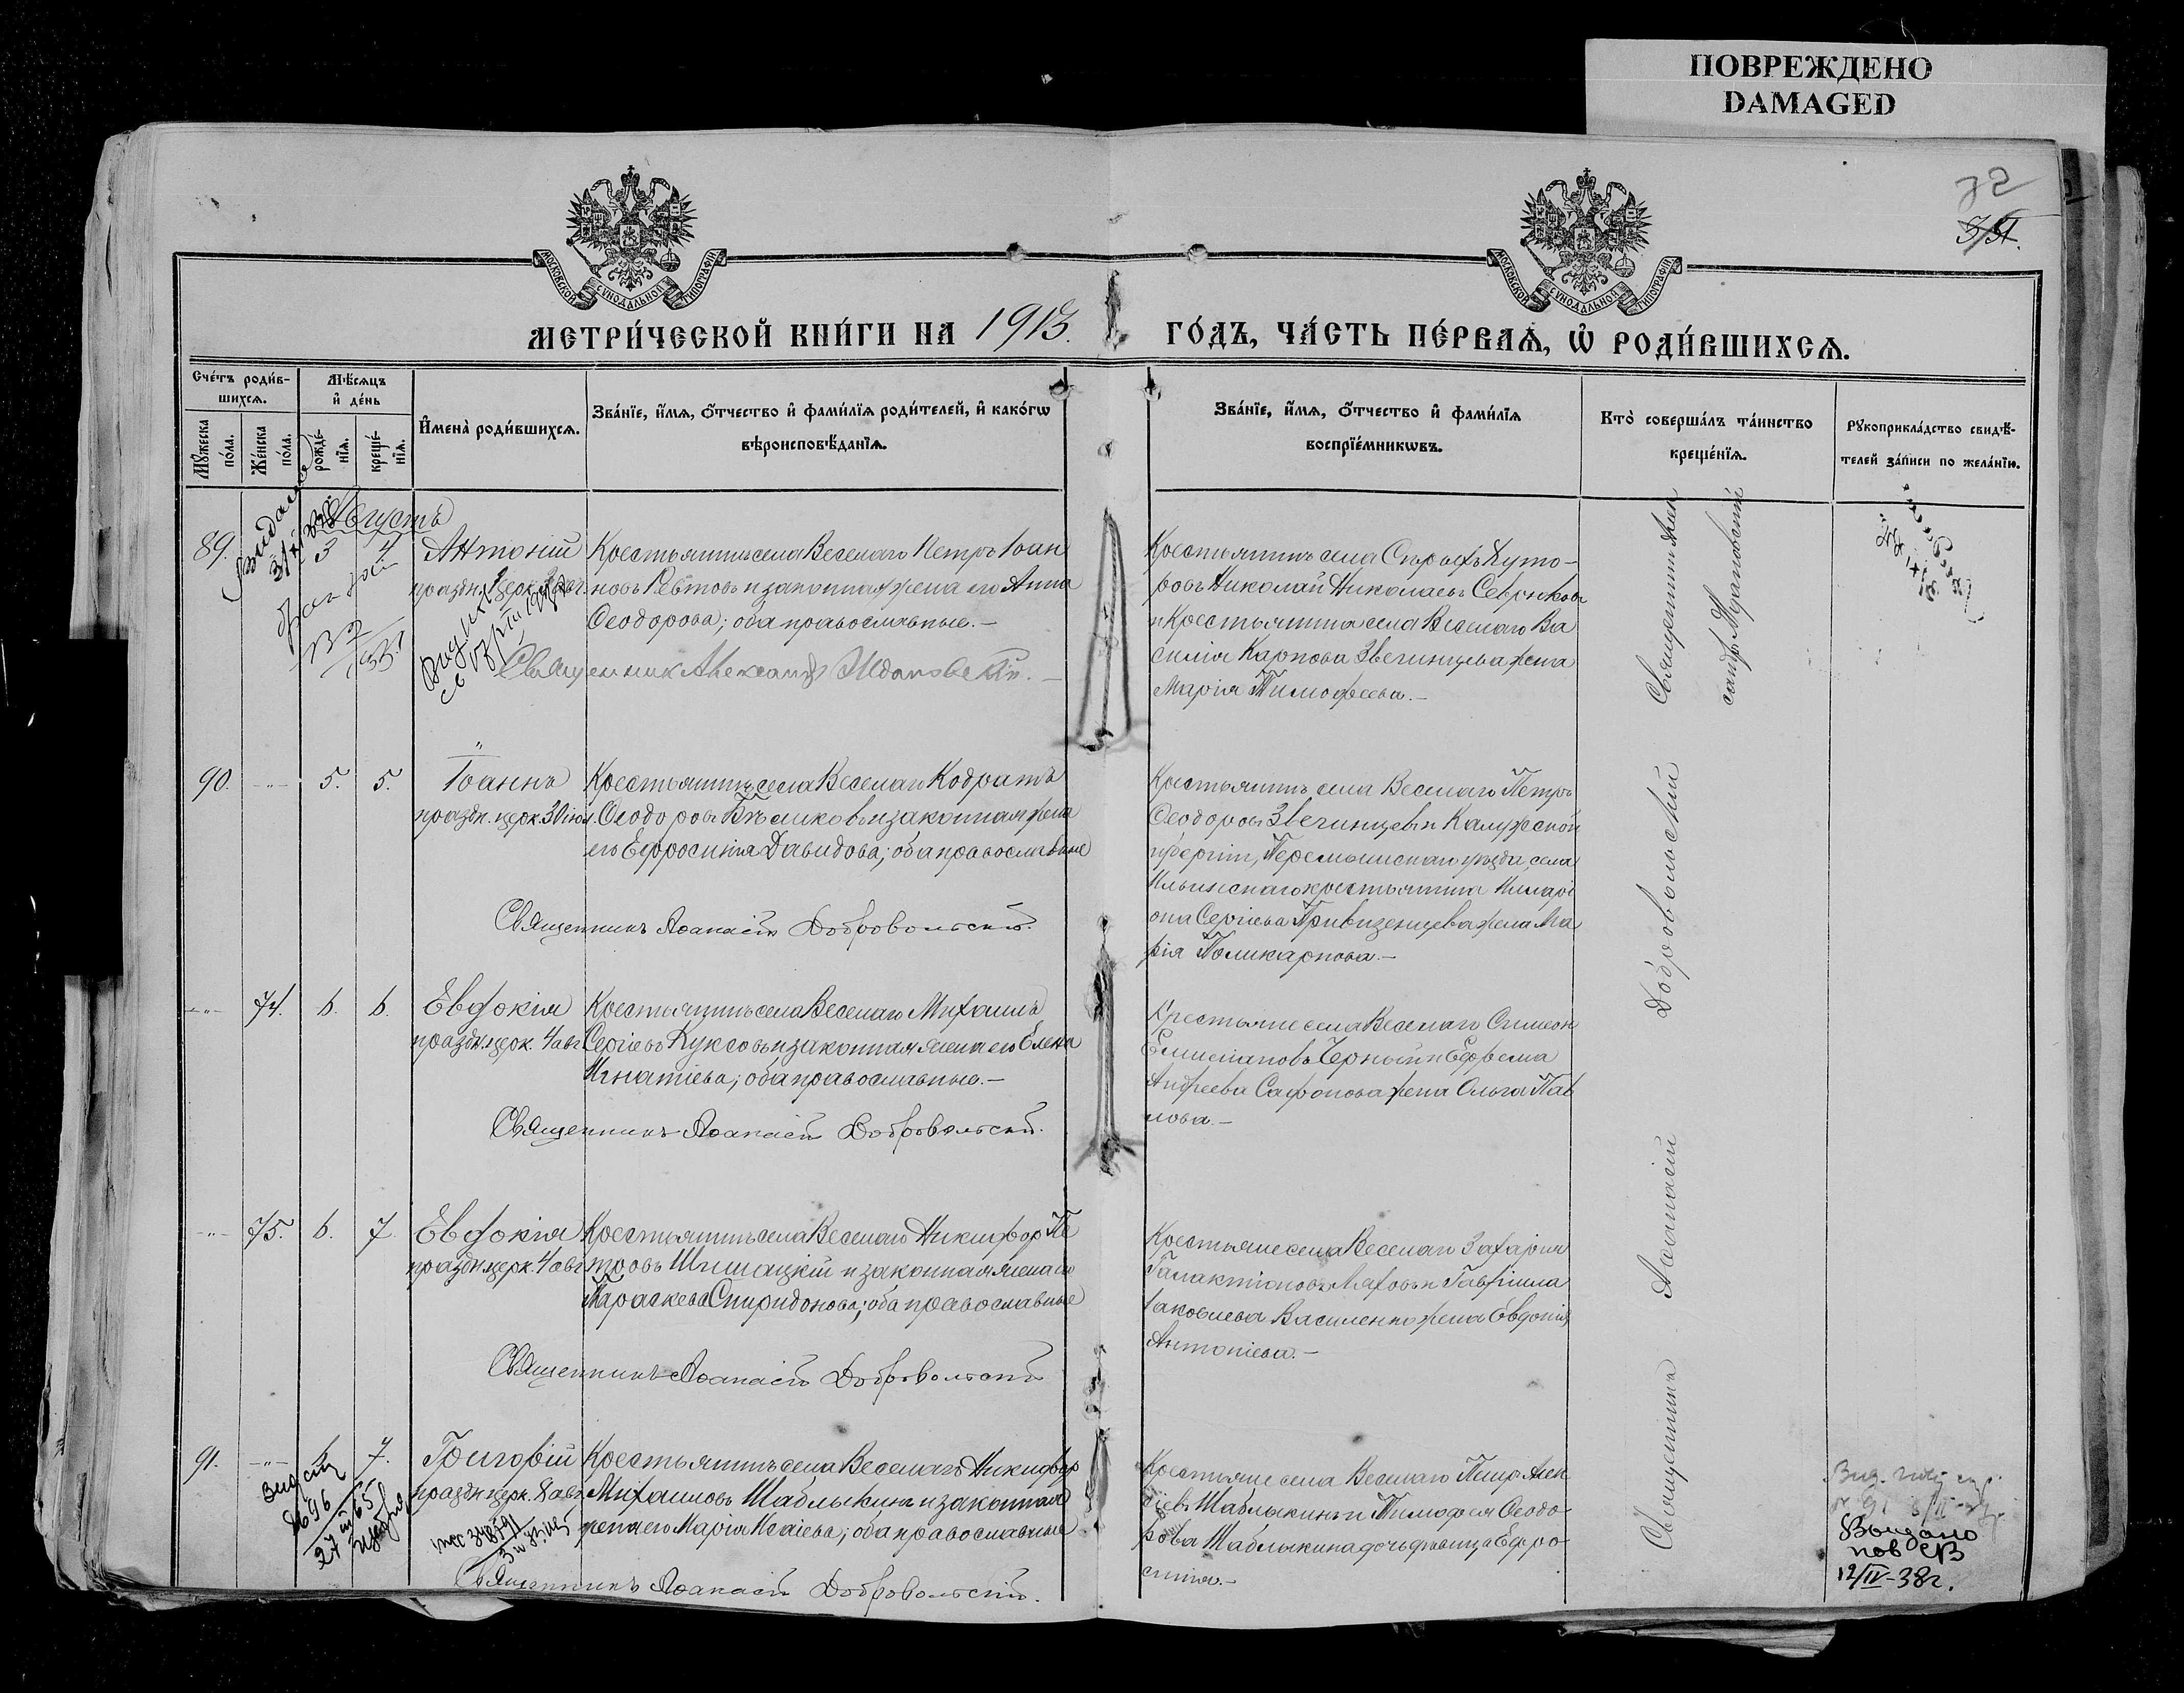 ПОВРЕЖДЕНО
DAMAGED
72
МОСКОВСКОЙ СѴНОДАЛЬНОЙ ТИПОГРАФІИ
МОСКОВСКОЙ СѴНОДАЛЬНОЙ ТИПОГРАФІИ
МЕТРИ́ЧЕСКОЙ КНИ́ГИ НА 1913. ГО́ДЪ, ЧА́СТЬ ПЕ́РВАѦ, Ѡ҆ РОДИ́ВШИХСѦ.
Сче́тъ роди́в-
шихсѧ.
Мѣ́сѧцъ
и҆ де́нь
Мꙋ́жеска
по́ла.
Же́нска
по́ла.
рожде́-
нїѧ.
креще́-
нїѧ.
И҆мена̀ роди́вшихсѧ.
Зва́нїе, и҆́мѧ, ѻ҆́тчество и҆ фами́лїѧ роди́телей, и҆ како́гѡ
вѣроисповѣ́данїѧ.
Зва́нїе, и҆́мѧ, ѻ҆́тчество и҆ фами́лїѧ
воспрїе́мникѡвъ.
Кто̀ соверша́лъ та́инство
креще́нїѧ.
Рꙋкоприкла́дство свидѣ́-
телей за́писи по жела́нїю.
Августъ
89. 3 4 Антоній
праздн. церк.
Крестьянинъ села Веселаго Петръ Іоан
новъ Ревтовъ и законная жена его Анна
Ѳеодорова; оба православные.-
Священник Александр Ждановский.-
Крестьянинъ села Старыхъ Хуто-
ровъ Николай Николаевъ Севрюковъ
и Крестьянина села Веселаго Ва
силія Карпова Звегинцева жена
Марія Тимофеева.-
Священник Алек
сандръ Ждановский
90. -"- 5. 5. Іоаннъ
праздн. церк. 30 іюл
Крестьянинъ села Веселаго Кодратъ
Ѳеодоровъ Бѣликовъ и законная жена
его Ефросинія Давидова; оба православные
Священникъ Аѳанасій Добровольскій.
Крестьянинъ села Веселаго Петръ
Ѳеодоровъ Звегинцевъ и Калужской
губерніи, Перемышльскаго уезда, села
Ильинскаго крестьянина Иларі
она Сергіева Привизенцева жена Ма
рія Поликарпова.-
-"- 74. 6. 6. Евдокія
праздн. церк. 4 авг
Крестьянинъ села Веселаго Михаилъ
Сергіевъ Куксовъ и законная жена его Елена
Игнатіева; оба православные.-
Священникъ Аѳанасій Добровольскій.
Крестьяне села Веселаго Симеон
Емиліановъ Черный и Ефрема
Андреева Сафонова жена Ольга Пав
лова.-
-"- 75. 6. 7 Евдокія
праздн. церк. 4 авг
Крестьянинъ села Веселаго Никифор Пе
тровъ Шишацкій и законная жена его
Параскева Спиридонова; оба православные
Священникъ Аѳанасій Добровольскій
Крестьяне села Веселаго Захарія
Галактіоновъ Ляховъ и Гавріила
Іаковлева Василенко жена Евдокія
Антоніева.-
91. -"- 6. 7. Григорій
праздн. церк. 8 авг
Крестьянинъ села Веселаго Никифор
Михаиловъ Шаблыкинъ и законная
жена его Марія Исаіева; оба православные
Священникъ Аѳанасій Добровольскій.
Крестьяне села Веселаго Петръ Алек
сіевъ Шаблыкинъ и Тимофея Ѳеодо-
рова Шаблыкина дочь девица Ефро-
синія.-
Священники Аѳанасій Добровольский
Выдано
пов СВ
12/IV-38г.